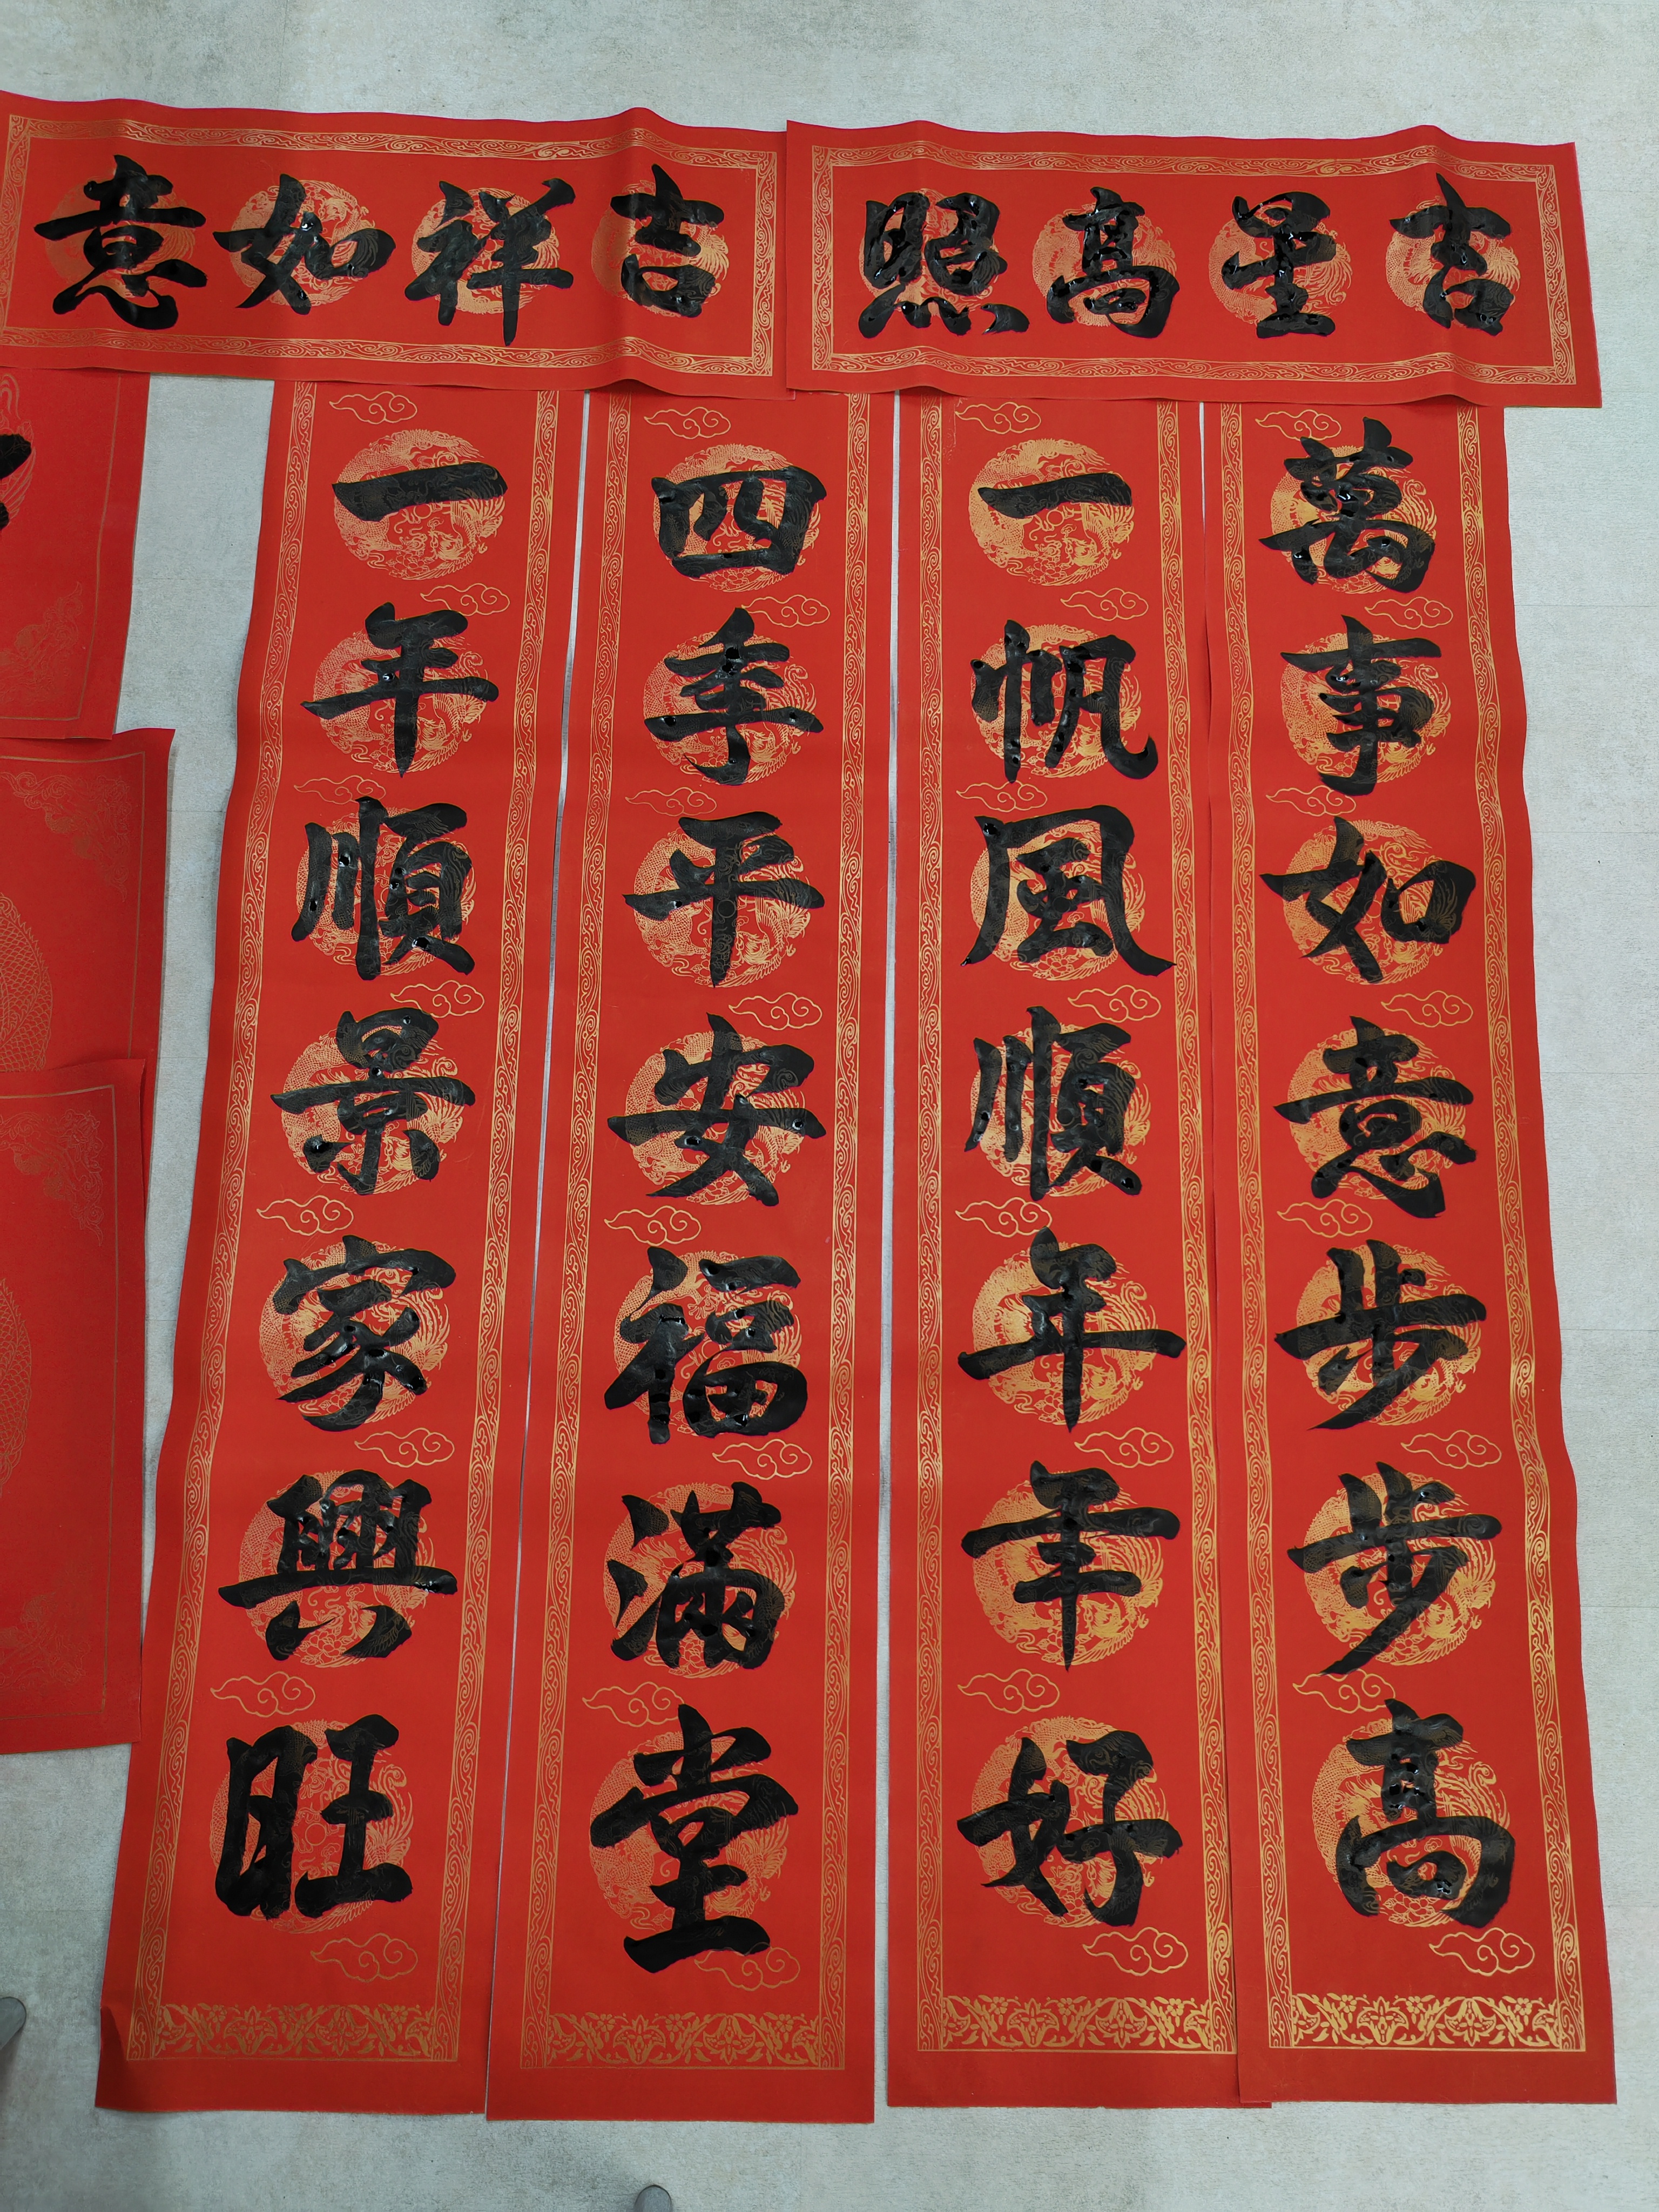 吉星高照
吉祥如意
萬事如意步步高
一帆風順年年好
四季平安福滿堂
一年順景家興旺